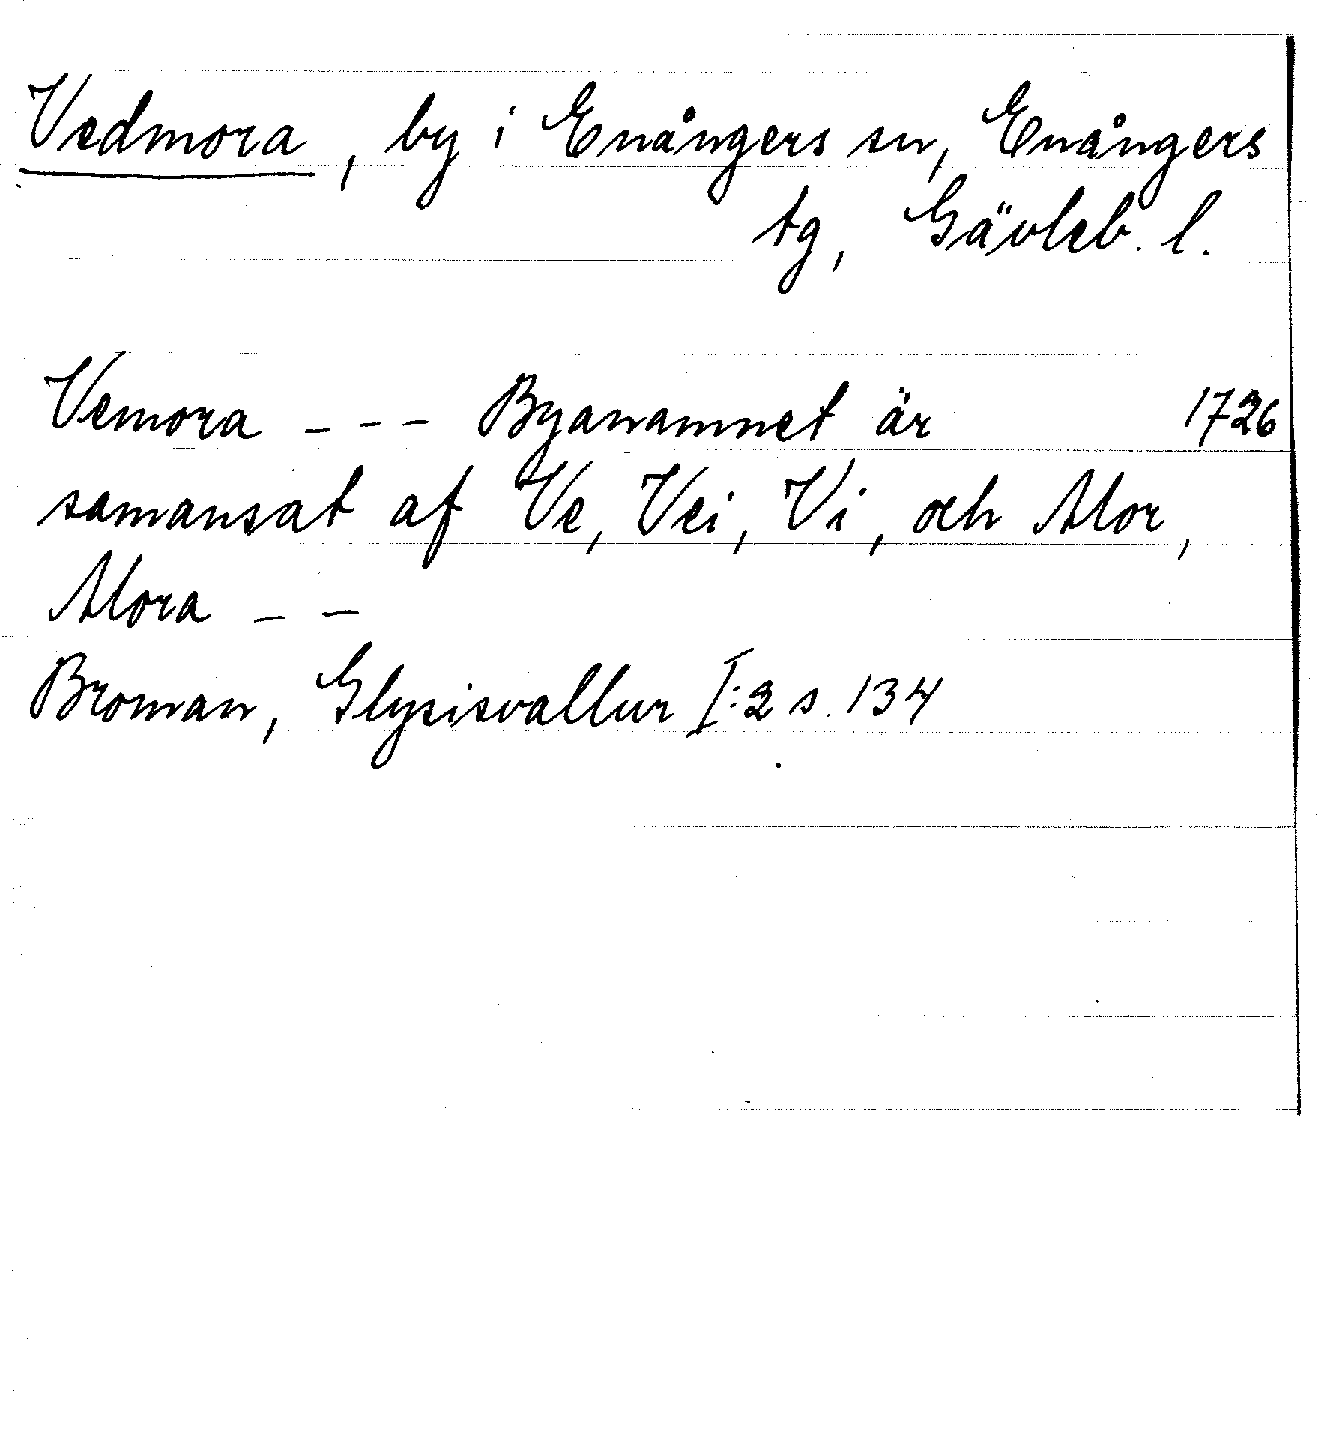 Vedmora, by i Enångers sn, Enångers
tg, Gävleb. l.
Vemora - - - Byanamnet är 1726
samansat af Ve, Vei, Vi, och Mor,
Mora - -
Broman, Glysisvallur I:2 s. 134